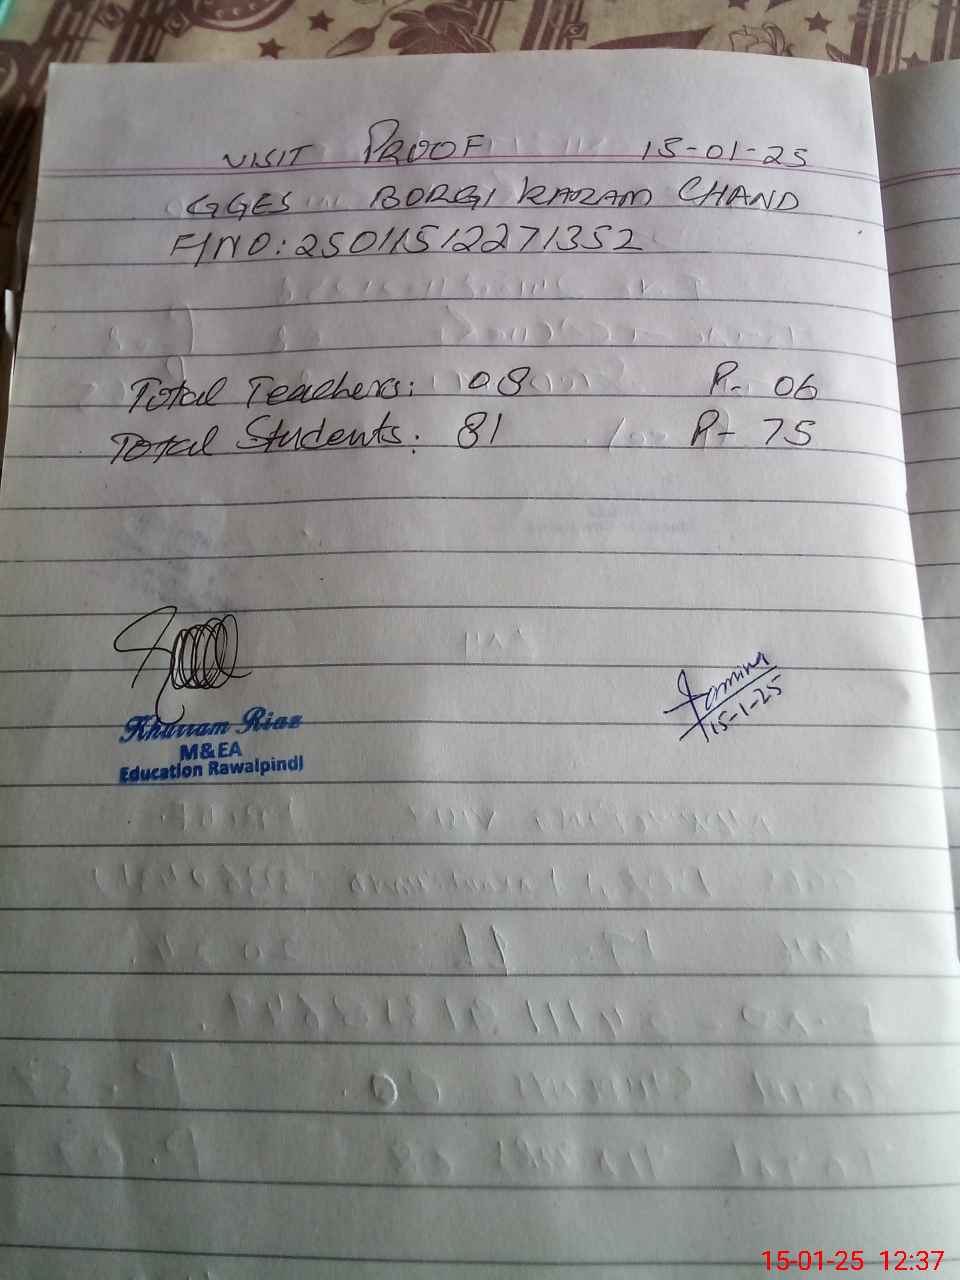 VISIT PROOF 15-01-25
GGES BORGI KARAM CHAND
F/NO: 25011512271352
Total Teachers: 08 P- 06
Total Students: 81 P- 75
15-1-25
Khurram Riaz
M&EA
Education Rawalpindi
15-01-25 12:37